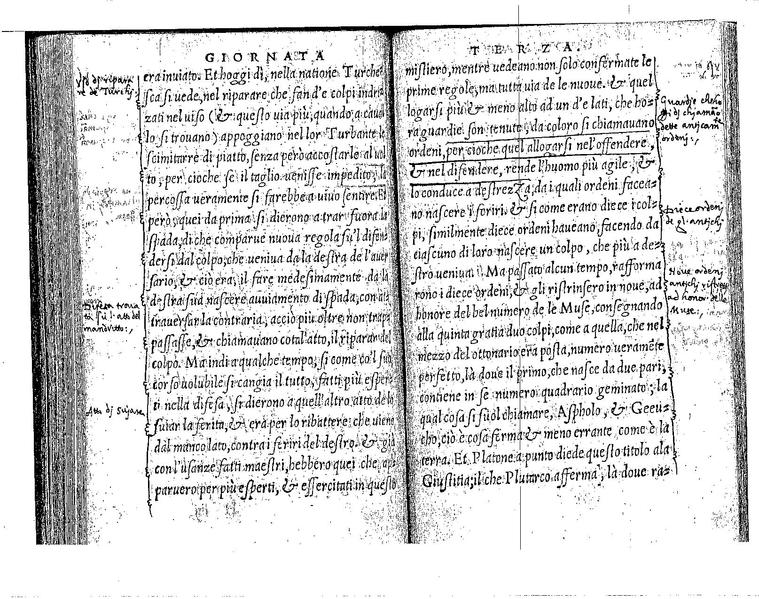 GIORNATA
era inuiato. Et hoggi dì, nella natione Turche
sca si uede, nel riparare che fan d'e colpi indri-
zati nel uiso (& questo via più, quando, a caual
lo si trouano) appoggiano nel lor Turbante le
scimitarre di piatto, senza però accostarle al uol
to; per cioche se il taglio uenisse impedito, la
percossa ueramente si farebbe a uiuo sentire. Et
però, quei da prima si dierono a trar fuora la
spada, di che comparue nuoua regola su'l difen-
dersi dal colpo, che ueniua da la destra de l'auer
sario, & ciò era, il fare medesimamente da la
destra sua nascere auuiamento di spada, con at-
trauersar la contraria, acciò più oltre non trap-
passasse, & chiamauano cotal'atto, il riparare del
colpo. Ma indi a qualche tempo, si come co'l suo
corso uolubile si cangia il tutto, fatti più esper-
ti nella difesa, si dierono a quell'altro atto de lo
suiar la ferita, & era per lo ribattere che uiene
dal manco lato, contra i feriri del destro. & già
con l'usanze fatti maestri, hebbero quei che ap-
paruero per più esperti, & essercitati in questo
re de Turchi.
mandritto.
Atto di suiare
TERZA.
mistiero, mentre uedeano non solo confermate le
prime regole, ma tutta uia de le nuoue. & quel
logarsi più & meno alto ad un d'e lati, che ho-
ra guardie son tenute, da coloro si chiamauano
ordeni, per cioche quel allogarsi nel'offendere,
& nel difendere, rende l'huomo più agile, &
lo conduce a destrezza, da i quali ordeni facea-
no nascere i feriri. & si come erano diece i col-
pi, similmente diece ordeni haueano, facendo da
ciascuno di loro nascere un colpo, che più a de-
stro ueniua. Ma passato alcun tempo, rafforma
rono i diece ordeni, & gli ristrinsero in noue, ad
honore del bel numero de le Muse, consegnando
alla quinta gratia duo colpi, come a quella, che nel
mezzo del ottonario era posta, numero ueramẽte
perfetto, là doue il primo, che nasce da due pari,
contiene in se numero quadrario geminato; la
qual cosa si suol chiamare, Aspholo, & Geeu-
cho, ciò è cosa ferma & meno errante come è la
terra. Et Platone a punto diede questo titolo ala
Giustitia; il che Plutarco afferma, là doue ra-
Guardie che ho
gi di chiamã
dette antican.
ordeni.
Diece ordeni
de gl'antichi
Noue ordeni
antichi ristreti
ad honor delle
Muse.